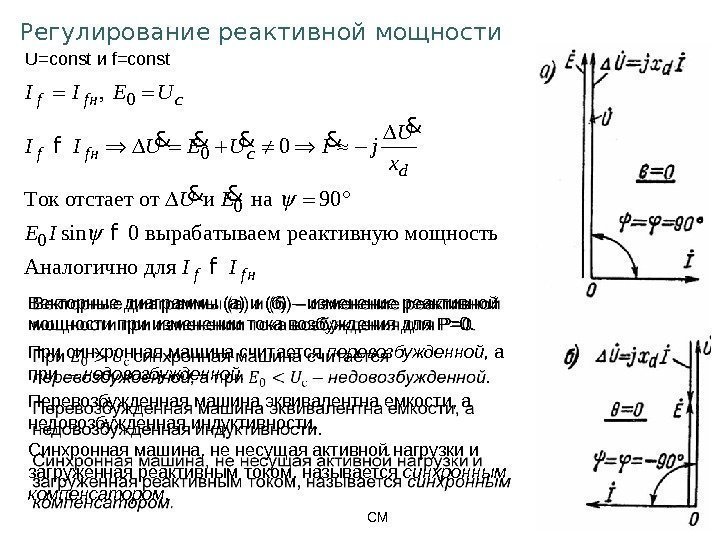 Регулирование реактивной мощности
U=const и f=const
I_f = I_fн, E_0 = U_c
I_f f I_fн ⇒ ΔU& = E&_0 + U&_c ≠ 0 ⇒ I& ≈ −j ΔU& / x_d
Ток отстает от ΔU& и E&_0 на ψ = 90°
E_0 I sinψ f 0 вырабатываем реактивную мощность
Аналогично для I_f f I_fн
Векторные диаграммы (а) и (б) – изменение реактивной
мощности при изменении тока возбуждения для P=0.
При E_0 > U_c синхронная машина считается
перевозбужденной, а при E_0 < U_c – недовозбужденной.
Перевозбужденная машина эквивалентна емкости, а
недовозбужденная индуктивности.
Синхронная машина, не несущая активной нагрузки и
загруженная реактивным током, называется синхронным
компенсатором.
СМ
а)
Ė
ΔU̇=jx_d İ
U̇
θ=0
ψ=φ=90°
İ
б)
ΔU̇=jx_d İ
U̇
Ė
θ=0
ψ=φ=−90°
İ